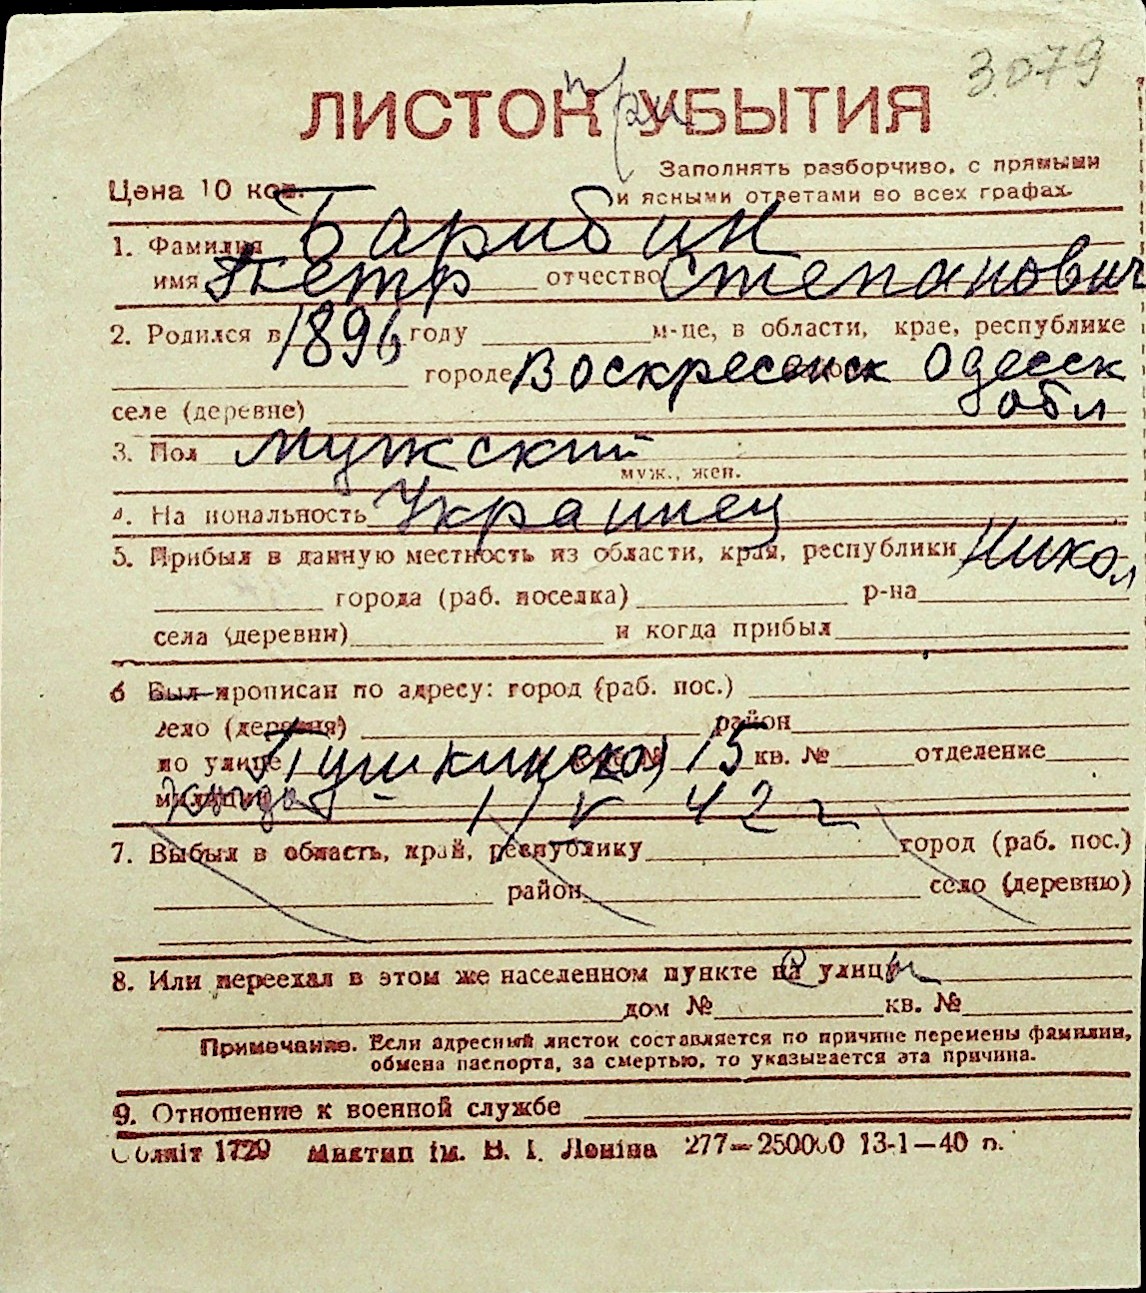 3.079
при
ЛИСТОК УБЫТИЯ
Заполнять разборчиво, с прямыми
Цена 10 коп.
и ясными ответами во всех графах.
1. Фамилия Барибин
имя Петр отчество Степанович
2. Родился в 1896 году м-це, в области, крае, республике
городе Воскресенск Одесск
селе (деревне) обл
3. Пол мужский
муж., жен.
4. Национальность Украинец
5. Прибыл в данную местность из области, края, республики Никол
города (раб. поселка) р-на
села (деревни) и когда прибыл
6 Был прописан по адресу: город (раб. пос.)
село (деревня) район
по улице Пушкинской № 15 кв. № отделение
милиции 1/V 42 г
7. Выбыл в область, край, республику город (раб. пос.)
район село (деревню)
8. Или переехал в этом же населенном пункте на улицы
дом № кв. №
Примечание. Если адресный листок составляется по причине перемены фамилии,
обмена паспорта, за смертью, то указывается эта причина.
9. Отношение к военной службе
Обляіт 1729 Миктип ім. В. І. Леніна 277—250000 13-1—40 п.